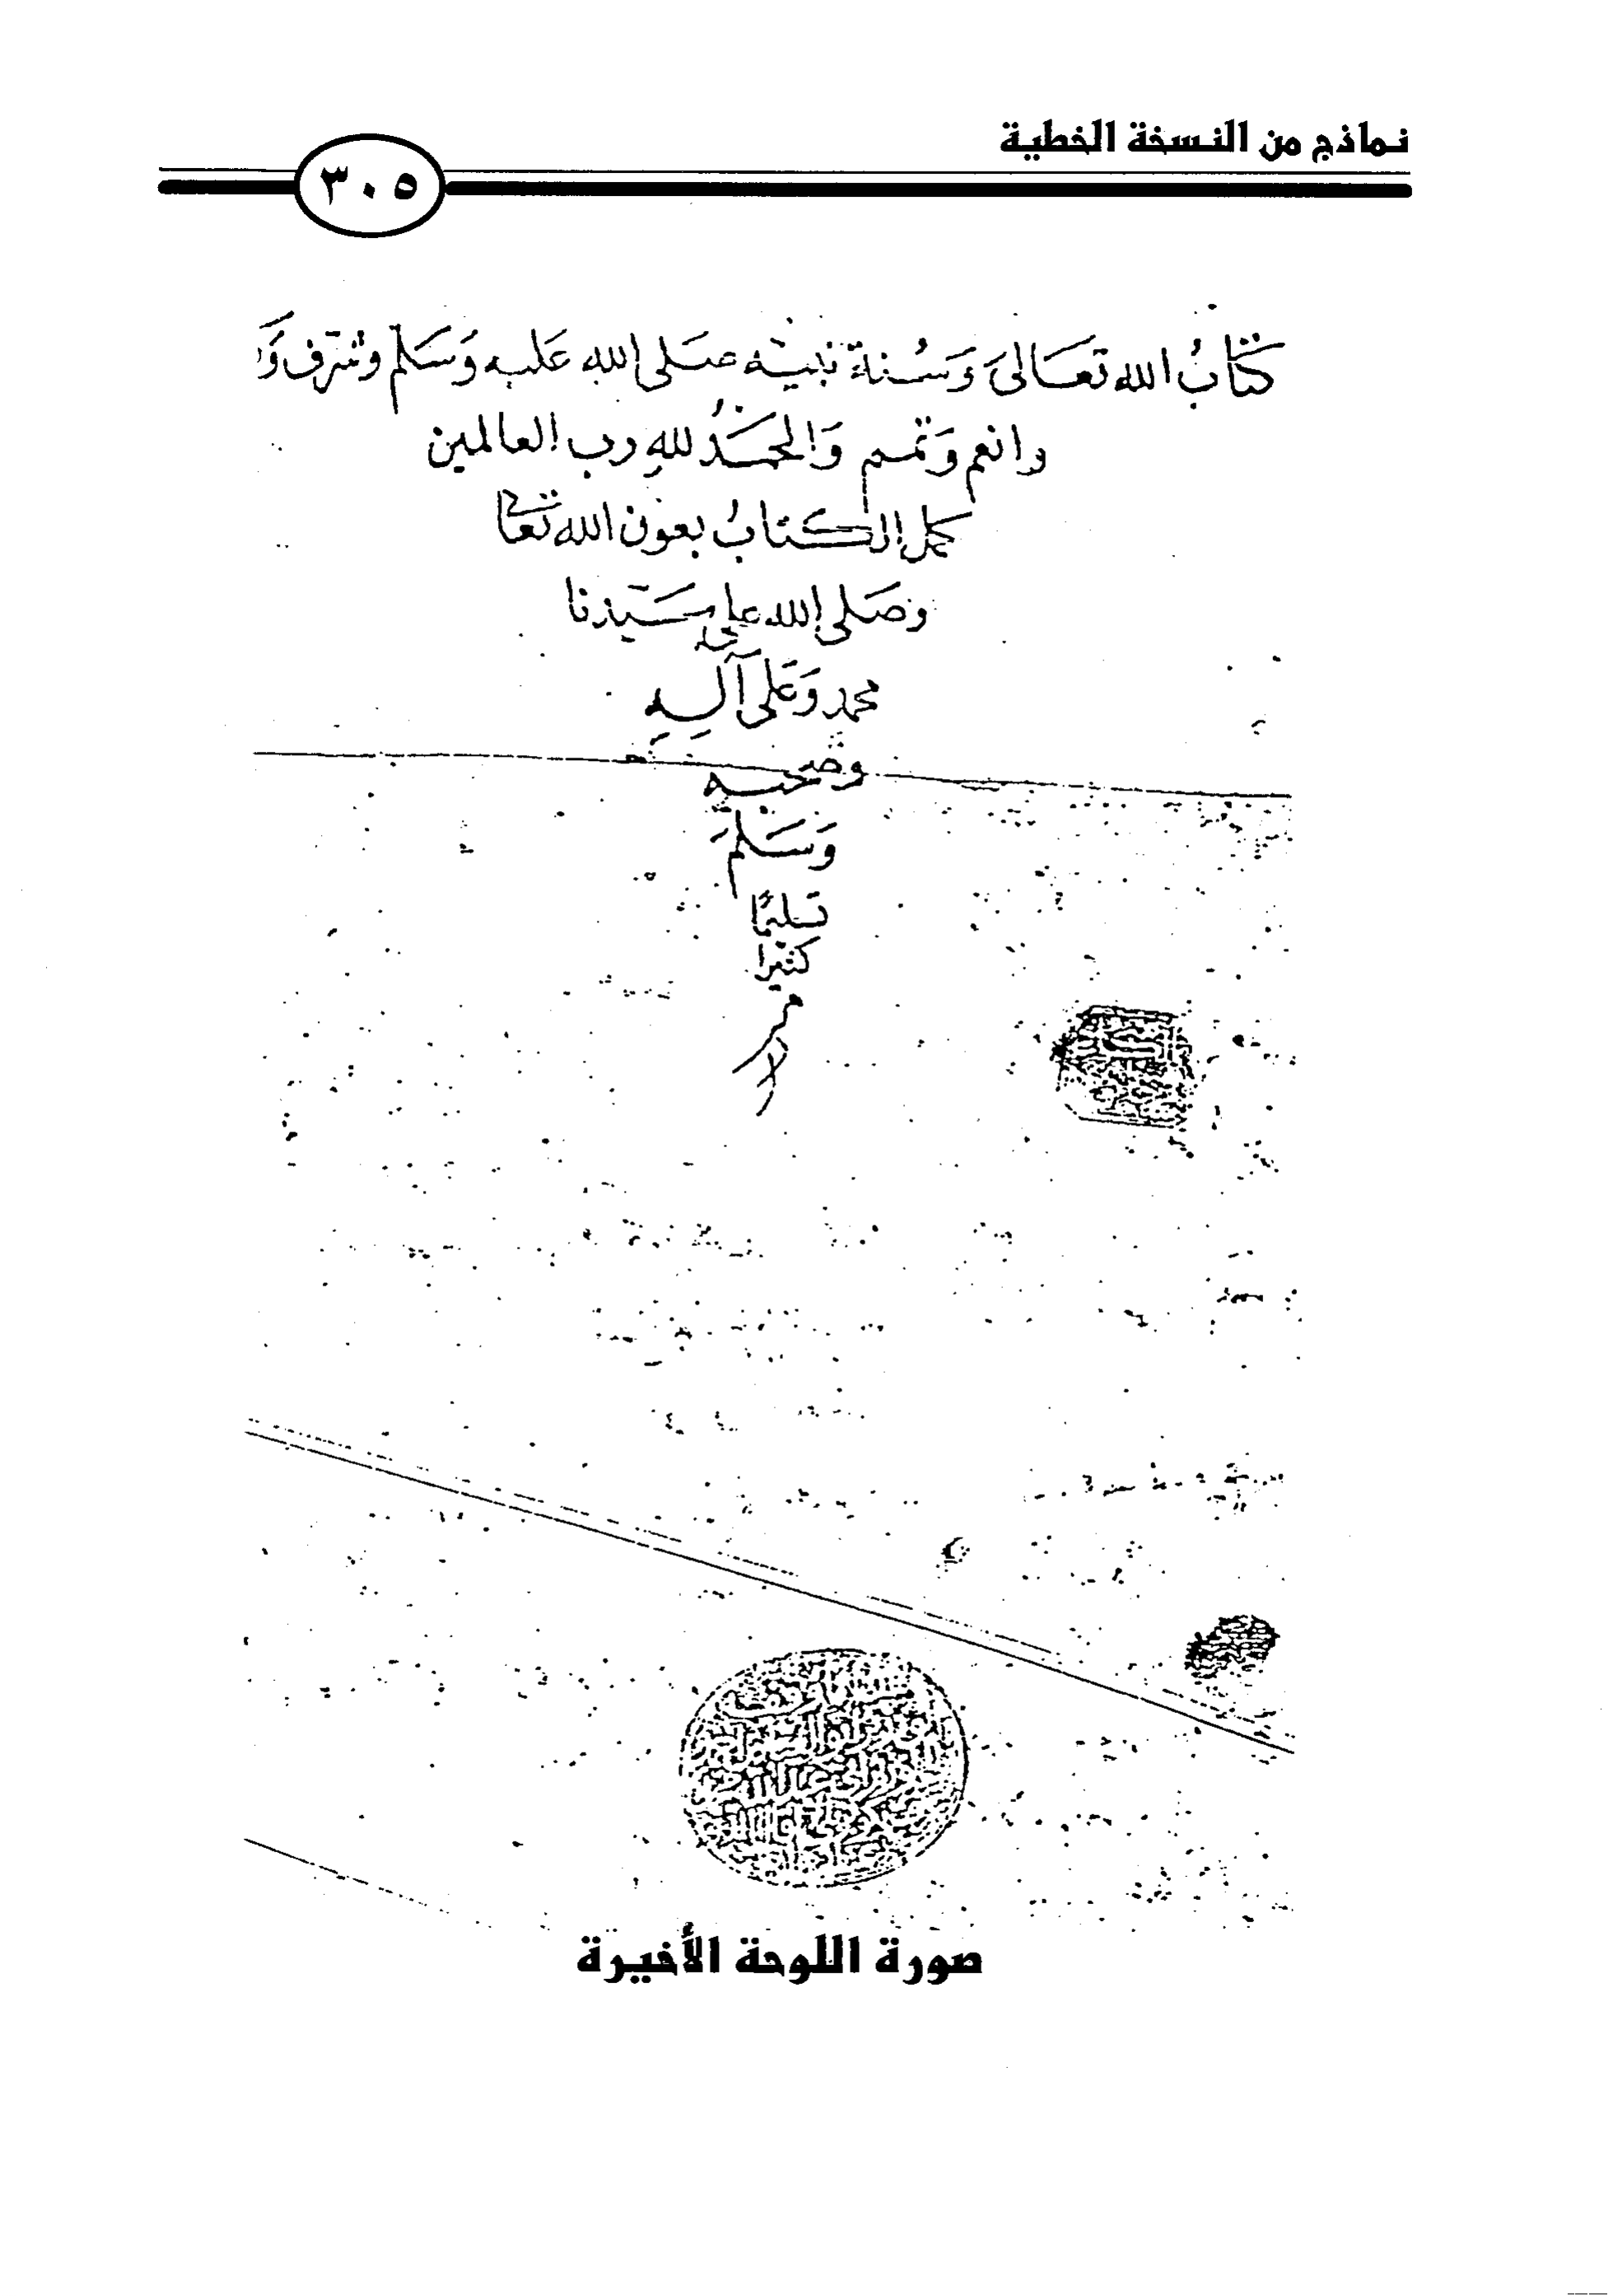 نماذج من النسخة الخطية
٣٠٥
كتابُ الله تعَالىَ وَسُنة نبيه صَلى الله عَليه وَسَلم وشرف وَ
وانعم وَتمم وَالحمَدُ للهِ رب العالمين
كمل الكتابُ بعون الله تعَالى
وصَلى الله على سَيدنا
محمد وَعَلى آلِهِ
وصحبه
وَسَلمَ
تسليمًا
كثيرا
صورة اللوحة الأخيرة